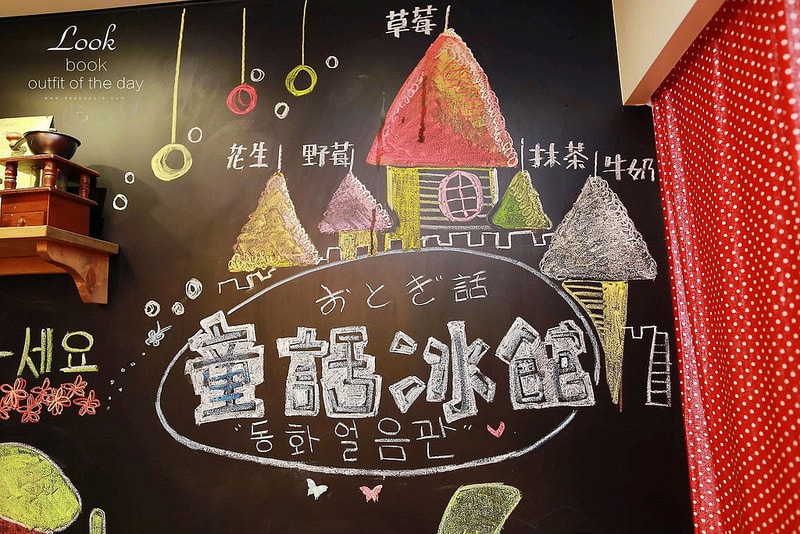 Look
book
outfit of the day
草莓
花生 野莓 抹茶 牛奶
おとぎ話
童話冰館
"동화얼음판"
세요